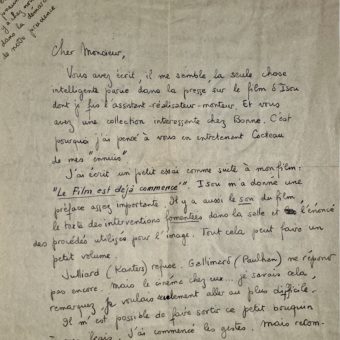 y a chez nos
dans la démarche
de notre prudence
Cher Monsieur,
Vous avez écrit, il me semble, la seule chose
intelligente parue dans la presse sur le film d'Isou
dont je fus l'assistant-réalisateur-monteur. Et vous
avez une collection interessante chez Bonne. C'est
pourquoi j'ai pensé à vous en entretenant Cocteau
de mes "ennuis"
J'ai écrit un petit essai comme suite à mon film:
"Le Film est déjà commencé". Isou m'a donné une
préface assez importante. Il y a aussi le son du film
le texte des interventions fomentées dans la salle et l'énoncé
des procédés utilisés pour l'image. Tout cela peut faire un
petit volume.
Julliard (Kanters) refuse. Gallimard (Paulhan) ne répond
pas encore. Mais le cinéma chez eux... je savais cela,
remarquez je voulais seulement aller au plus difficile.
Il m'est possible de faire sortir ce petit bouquin
frais. J'ai commencé les gestes. Mais recom-